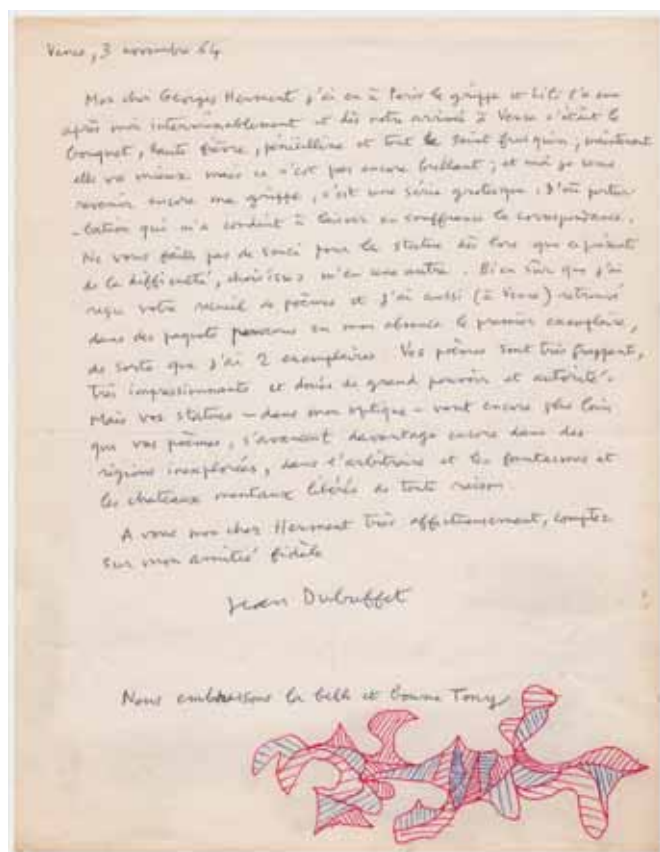 Vence, 3 novembre 64
Mon cher Georges Herment j'ai eu à Paris la grippe et Lili l'a eue
après moi interminablement et dès notre arrivée à Vence c'était le
bouquet, haute fièvre, pénicilline et tout le saint frusquin, maintenant
elle va mieux mais ce n'est pas encore brillant ; et moi je sens
revenir encore ma grippe, c'est une série grotesque. D'où pertur
-bation qui m'a conduit à laisser en souffrance la correspondance.
Ne vous faites pas de souci pour la statue dès lors que
de la difficulté, choisissez m'en une autre. Bien sûr que j'ai
reçu votre recueil de poèmes et j'ai aussi (à Vence) retrouvé
dans des paquets parvenus en mon absence le premier exemplaire,
de sorte que j'ai 2 exemplaires. Vos poèmes sont très frappant,
très impressionnants et doués de grand pouvoir et autorité.
Mais vos statues - dans mon optique - vont encore plus loin
que vos poèmes, s'avancent davantage encore dans des
régions inexplorées, dans l'arbitraire et les et
les chateaux mentaux libérés de toute raison.
A vous mon cher Herment très affectueusement, comptez
sur mon amitié fidèle
Jean Dubuffet
Nous embrassons la belle et bonne Tony